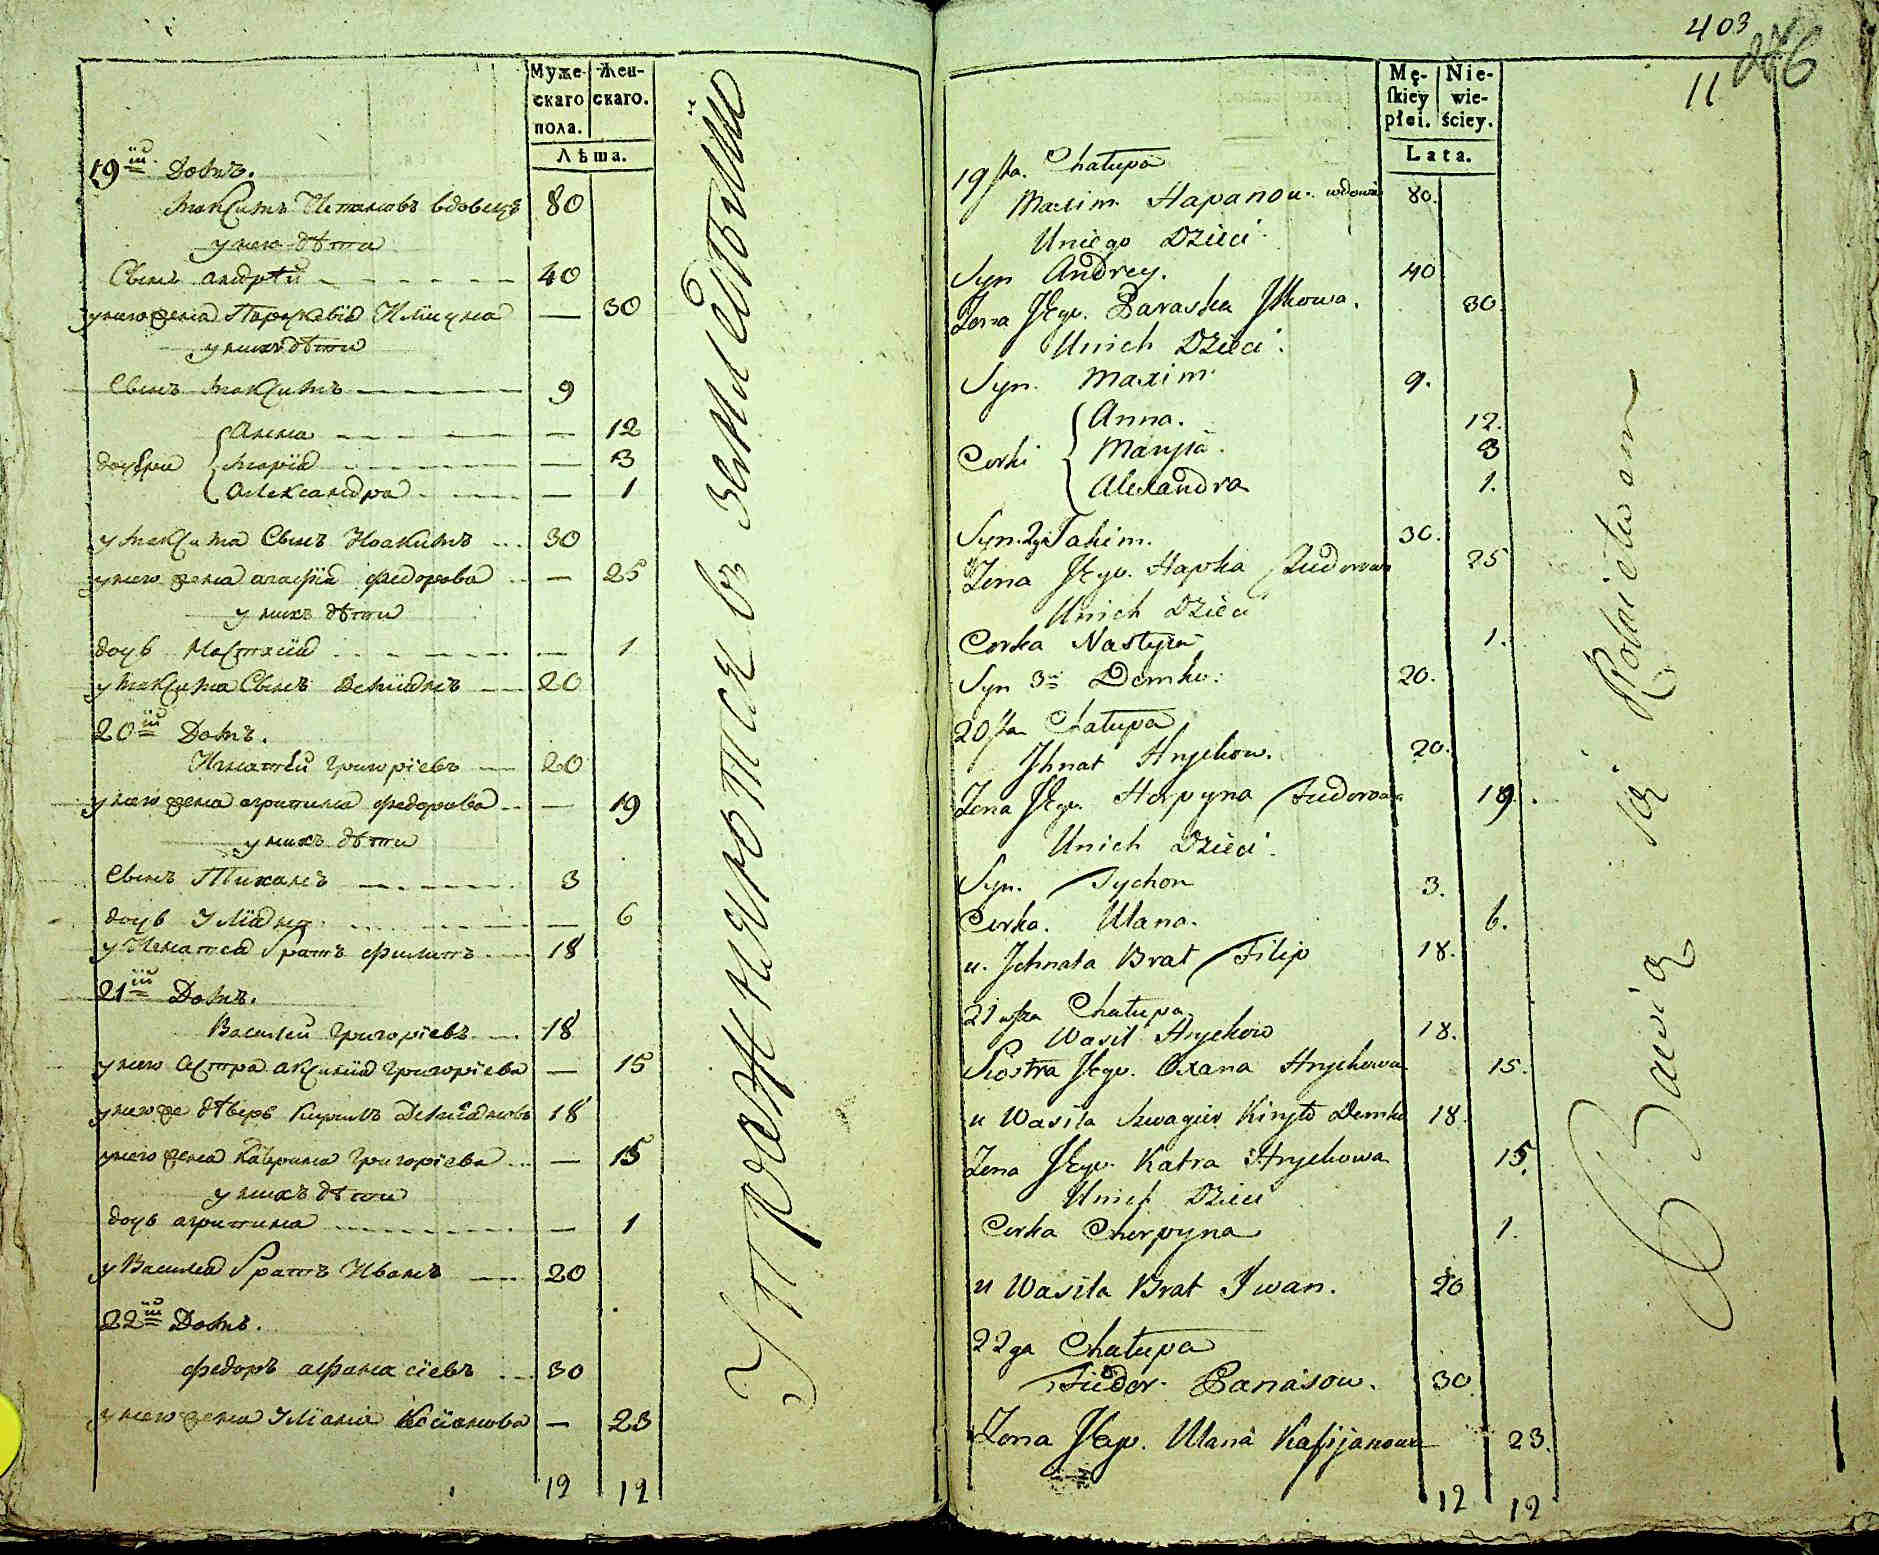 Муже-
скаго
пола.
Жен-
скаго.
Лѣта.
19й Домъ.
Максимъ Потаповъ вдовецъ 80
у него дѣти
Сынъ андрѣй 40
у него жена Парасковія Илична — 30
у нихъ дѣти
Сынъ Максимъ 9
Анна — 12
дочери Марія — 3
Александра — 1
у Максима Сынъ Иоакимъ 30
у него жена агафія федорова — 25
у нихъ дѣти
дочь Настасія — 1
у Максима Сынъ Деміднъ 20
20й Домъ.
Игнатѣй григоріевъ 20
у него жена агрипина федорова — 19
у нихъ дѣти
Сынъ Тиханъ 3
дочь Уліяна — 6
у Игнатея братъ филипъ 18
21й Домъ.
Василей григоріевъ 18
у него сестра аксинія григоріева — 15
у него же дѣверь кирилъ Деміедновъ 18
у него жена катрина григоріева — 15
у нихъ дѣти
дочь агрипина — 1
у Василея братъ Иванъ 20
22й Домъ.
федоръ афанасіевъ 30
у него жена Уліана Касіанова — 23
12 12
Упражняются в земледѣліи
403
276
11
Mę-
skiey
płci.
Nie-
wie-
ściey.
Lata.
19sta. Chałupa
Maxim Hapanow. wdowiec 80.
U niego Dzieci
Syn Andrey. 40
Żona Jego. Paraska Jlkowa. 30.
U nich Dzieci.
Syn. Maxim 9.
Anna. 12.
Corki Marysia. 3
Alexandra 1.
Syn. 2gi Jakim. 30.
Żona Jego. Hapka Fiudorowa 25
U nich Dzieci
Corka Nastysia 1.
Syn 3ci Demko. 20.
20sta Chałupa
Jhnat Hryckow. 20.
Żona Jego. Horpyna Fiudorowa 19.
U nich Dzieci.
Syn. Tychon 3.
Corka. Ulana. 6.
u. Jchnata Brat Filip 18.
21wsza Chałupa
Wasil Hryckow 18.
Siostra Jego. Oxana Hryckowa 15.
u Wasila Szwagier Kiryło Demko 18
Żona Jego. Katra Hryckowa 15.
U nich Dzieci
Corka Chorpyna 1.
u Wasila Brat Jwan. 20
22ga Chałupa
Fiudor. Panasow. 30
Żona Jego. Ulana Kasijanowa 23.
12 12
Bawią się Rolnictwem